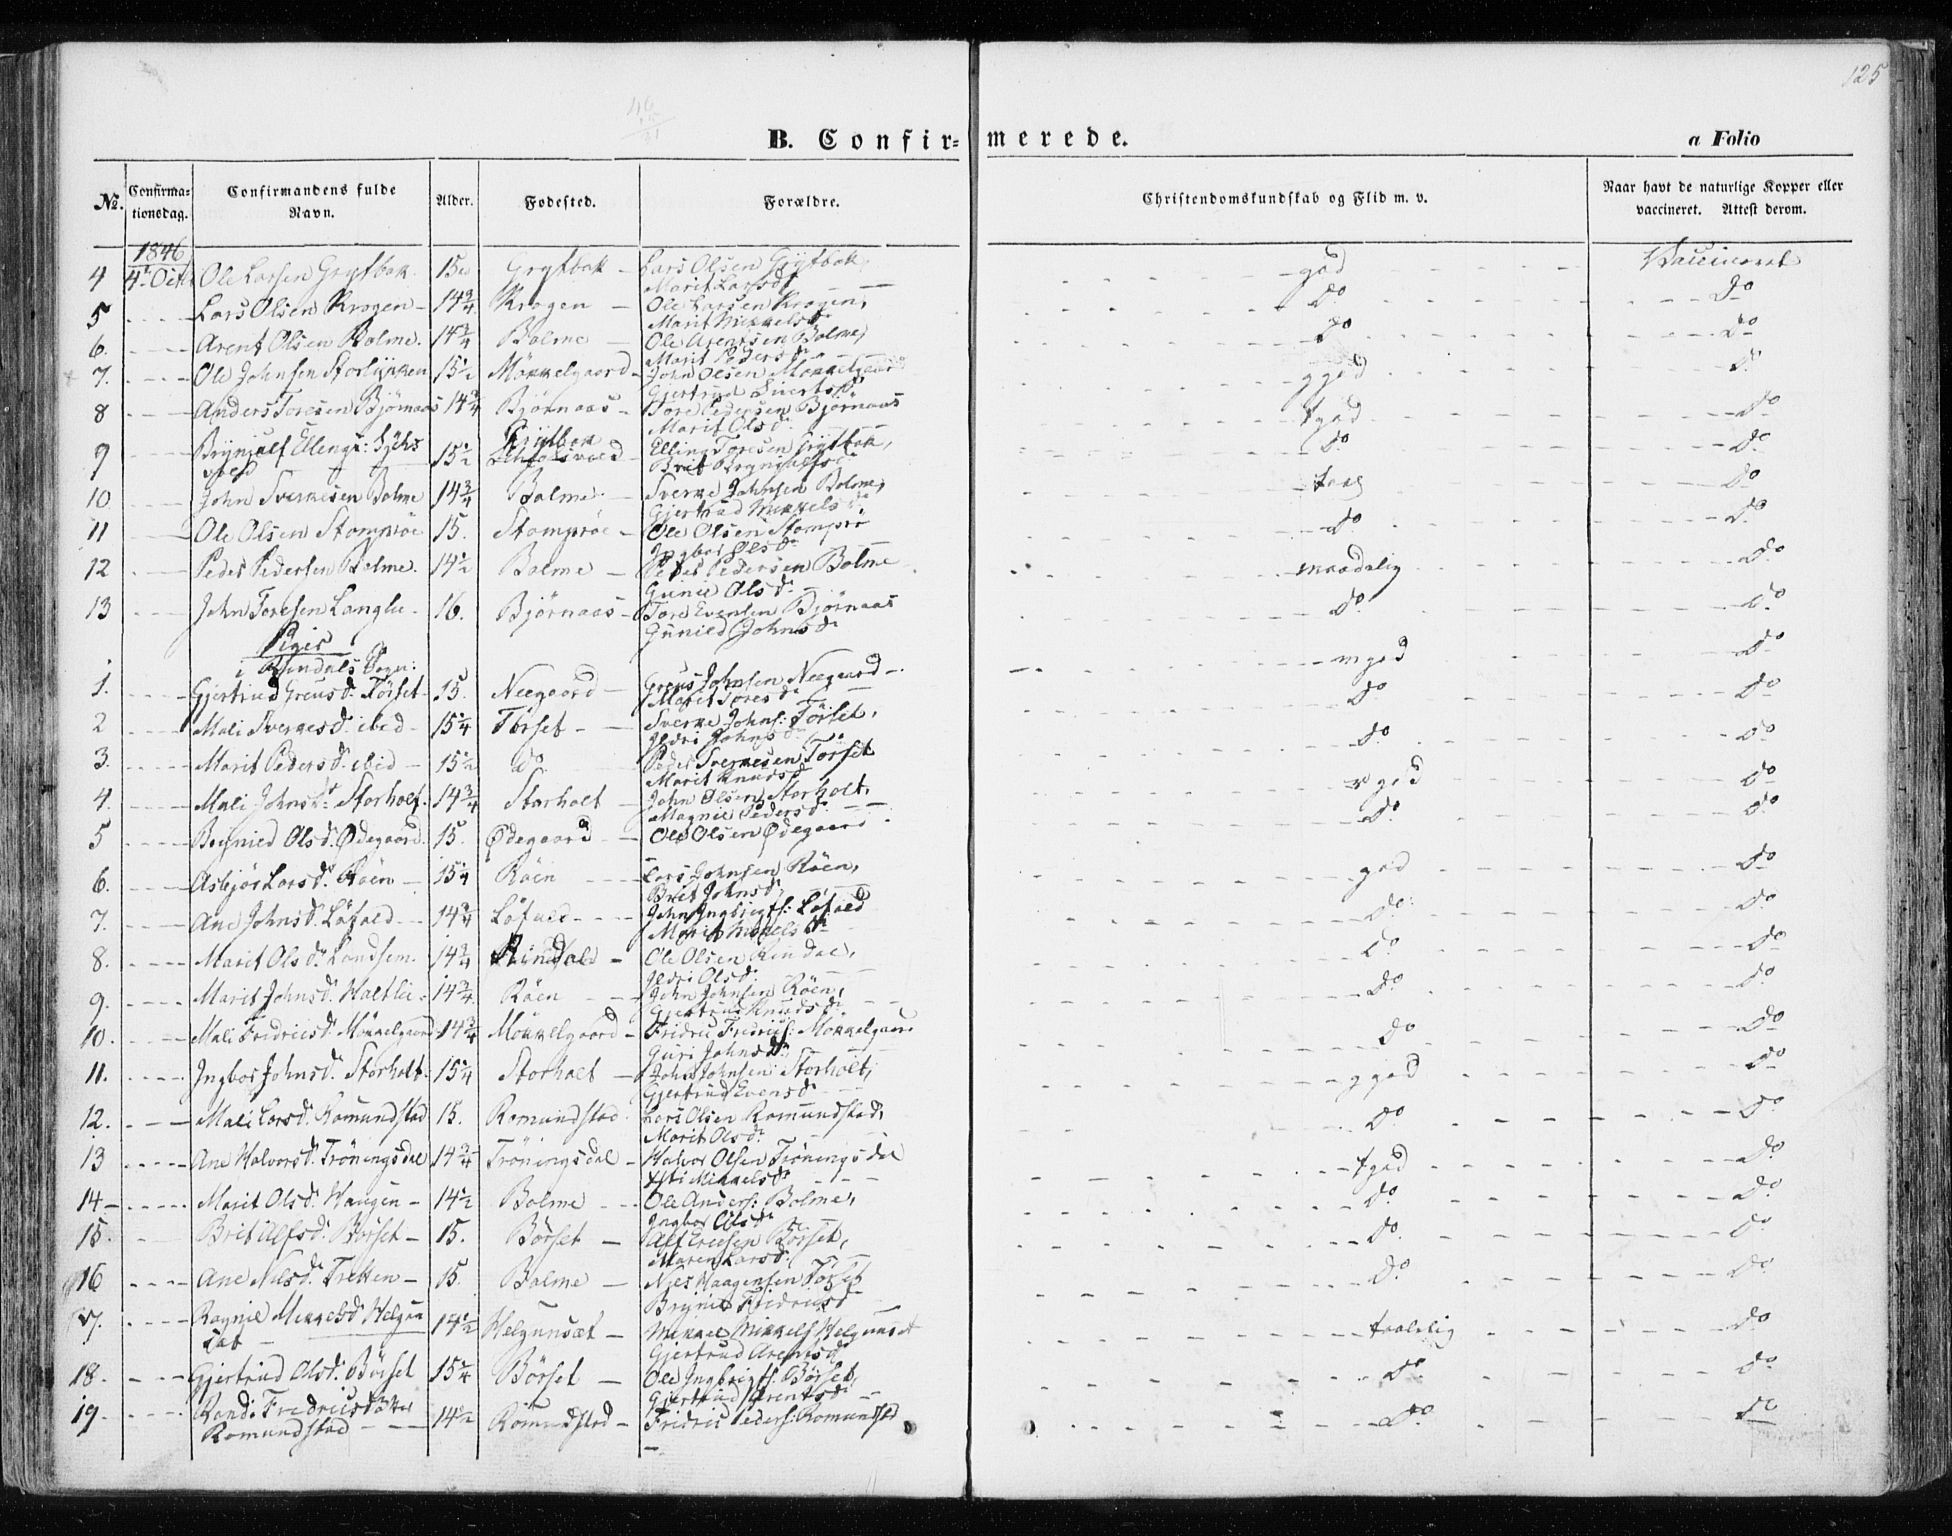 125
B. Confir-merede.
a Folio
No. Confirma-tionsdag. Confirmandens fulde Navn. Alder. Fødested. Forældre. Christendomskundskab og Flid m. v. Naar havt de naturlige Kopper eller vaccineret. Attest derom.
1846
4 4. Octbr Ole Larsen Grytbak 15 Grytbak Lars Olsen Grytbak, Marit Larsdr god Vaccineret
5 Lars Olsen Krogen 14 3/4 Krogen Ole Larsen Krogen, Marit Mikkelsdr Do Do
6. Arent Olsen Bolme. 14 3/4 Bolme Ole Arentsen Bolme, Marit Pedersdr Do Do
7. Ole Johnsen Storlykken 15 1/2 Mökkelgaard John Olsen Mökkelgaard Gjertrud Sivertsdr ggod Do
8 Anders Toresen Bjørnaas 14 3/4 Bjørnaas Tore Pedersen Bjørnaas Marit Olsdr tgod Do
9 Brynjulf Ellings: 15 1/2 Grytbak Elling Toresen Grytbak, Brit Brynjulfsdr Do Do
10 John Sverkesen Bolme 14 3/4 Bolme Sverke Johnsen Bolme, Gjertrud Mikkelsdr taal Do
11 Ole Olsen Stomprøe 15. Stomprøe Ole Olsen Stomprø Ingbor Olsdr Do Do
12 Peder Pedersen Bolme. 14 1/2 Bolme Peder Pedersen Bolme Gunil Olsdr maadelig Do
13 John Toresen Langlie 16. Bjørnaas Tore Evensen Bjørnaas Gunild Johnsdr Do Do
Piger
i Rindals Sogn:
1. Gjertrud Greusdr Törset 15. Neegaard Greus Johnsen Neegaard Marit Toresdr mgod Do
2 Mali Sverkesdr ibid 15 1/4 Törset Sverke Johns: Törset, Ildri Johnsdr Do Do
3. Marit Pedersdr ibid 15 1/2 Do Peder Sverkesen Törset Marit Knudsdr Do Do
4. Mali Johnsdr Storholt. 14 3/4 Storholt John Olsen Storholt, Magnil Pedersdr god Do
5 Olsdr Ødegaard. 15. Ødegaard Ole Olsen Ødegaard. Do Do
6. Asbjör Larsdr Röen 15 1/4 Röen Lars Johnsen Röen, Brit Johnsdr god Do
7. Ane Johnsdr Löfald 14 3/4 Löfald John Ingbrigts: Löfald Marit Mikkelsdr Do Do
8. Marit Olsdr Landsem 14 3/4 Rindal Ole Olsen Rindal, Ildri Olsdr Do Do
9. Marit Johnsdr Haltlie 14 3/4 Röen John Johnsen Röen, Gjertrud Knudsdr Do Do
10. Mali Fredricsdr Mökkelgaard 14 3/4 Mökkelgaard Fridric Fredrics: Mökkelgaard Guri Johnsdr Do Do
11. Ingbor Johnsdr Storholt 15 1/4 Storholt John Johnsen Storholt, Gjertrud Evensdr ggod Do
12. Mali Larsdr Romundstad 15. Romundstad Lars Olsen Romundstad, Marit Olsdr Do Do
13 Ane Halvorsdr Tröningsdal 14 3/4 Tröningsdal Halvor Olsen Tröningsdal Mikkelsdr tgod Do
14 Marit Olsdr Waagen 14 1/2 Bolme Ole Anders: Bolme, Ingbor Olsdr Do Do
15 Brit Alfsdr Börset 15. Börset Alf Ericsen Börset, Maren Larsdr Do Do
16 Ane Nilsdr Tretten 15. Bolme Nils Haagensen Fridricsdr Do Do
17. Ragnil Mikkelsdr Helgunsat 14 1/2 Helgunsæt Mikkel Mikkels Helgunset Gjertrud Arentsdr taalelig Do
18. Gjertrud Olsdr Börset 15 1/4 Börset Ole Ingbrigts: Börset, Gjertrud Arentsdr Do Do
19 Randi Fredricsdatter Romundstad 14 1/2 Romundstad Fridric Peders: Romundstad Do Do